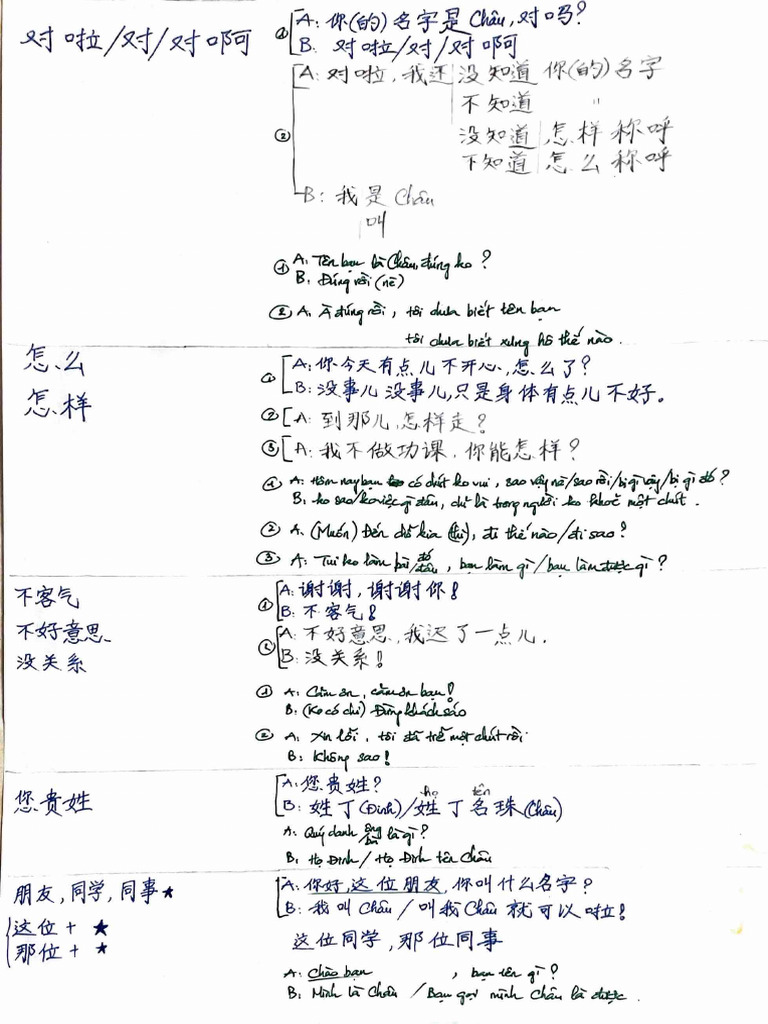 对啦/对/对啊
① A: 你(的)名字是 Châu, 对吗?
B: 对啦/对/对啊
② A: 对啦, 我还 没知道 你(的)名字
不知道 "
没知道 怎样称呼
不知道 怎么称呼
B: 我是 Châu
叫
① A: Tên bạn là Châu, đúng ko?
B: Đúng rồi (nè)
② A. À đúng rồi, tôi chưa biết tên bạn
tôi chưa biết xưng hô thế nào.
怎么
怎样
① A: 你今天有点儿不开心, 怎么了?
B: 没事儿没事儿, 只是身体有点儿不好。
② A: 到那儿, 怎样走?
③ A: 我不做功课, 你能怎样?
① A: Hôm nay bạn có chút ko vui, sao vậy nè/sao rồi/bị gì vậy/bị gì đó?
B: ko sao/ko việc gì đâu, chỉ là trong người ko khoẻ một chút.
② A. (Muốn) Đến chỗ kia (thì), đi thế nào/đi sao?
③ A: Tui ko làm bài đó/đâu, bạn làm gì/bạn làm được gì?
不客气
不好意思
没关系
① A: 谢谢, 谢谢你!
B: 不客气!
② A: 不好意思, 我迟了一点儿.
B: 没关系!
① A: Cảm ơn, cảm ơn bạn!
B: (Ko có chi) Đừng khách sáo
② A: Xin lỗi, tôi đã trễ một chút rồi
B: Không sao!
您贵姓
A: 您贵姓?
họ tên
B: 姓丁(Đinh)/姓丁名珠(Châu)
A: Quý danh ông/bà là gì?
B: Họ Đinh/Họ Đinh tên Châu
朋友, 同学, 同事★
这位+ ★
那位+ ★
A: 你好, 这位朋友, 你叫什么名字?
B: 我叫 Châu / 叫我 Châu 就可以啦!
这位同学, 那位同事
A: Chào bạn , bạn tên gì?
B: Mình là Châu / Bạn gọi mình Châu là được.